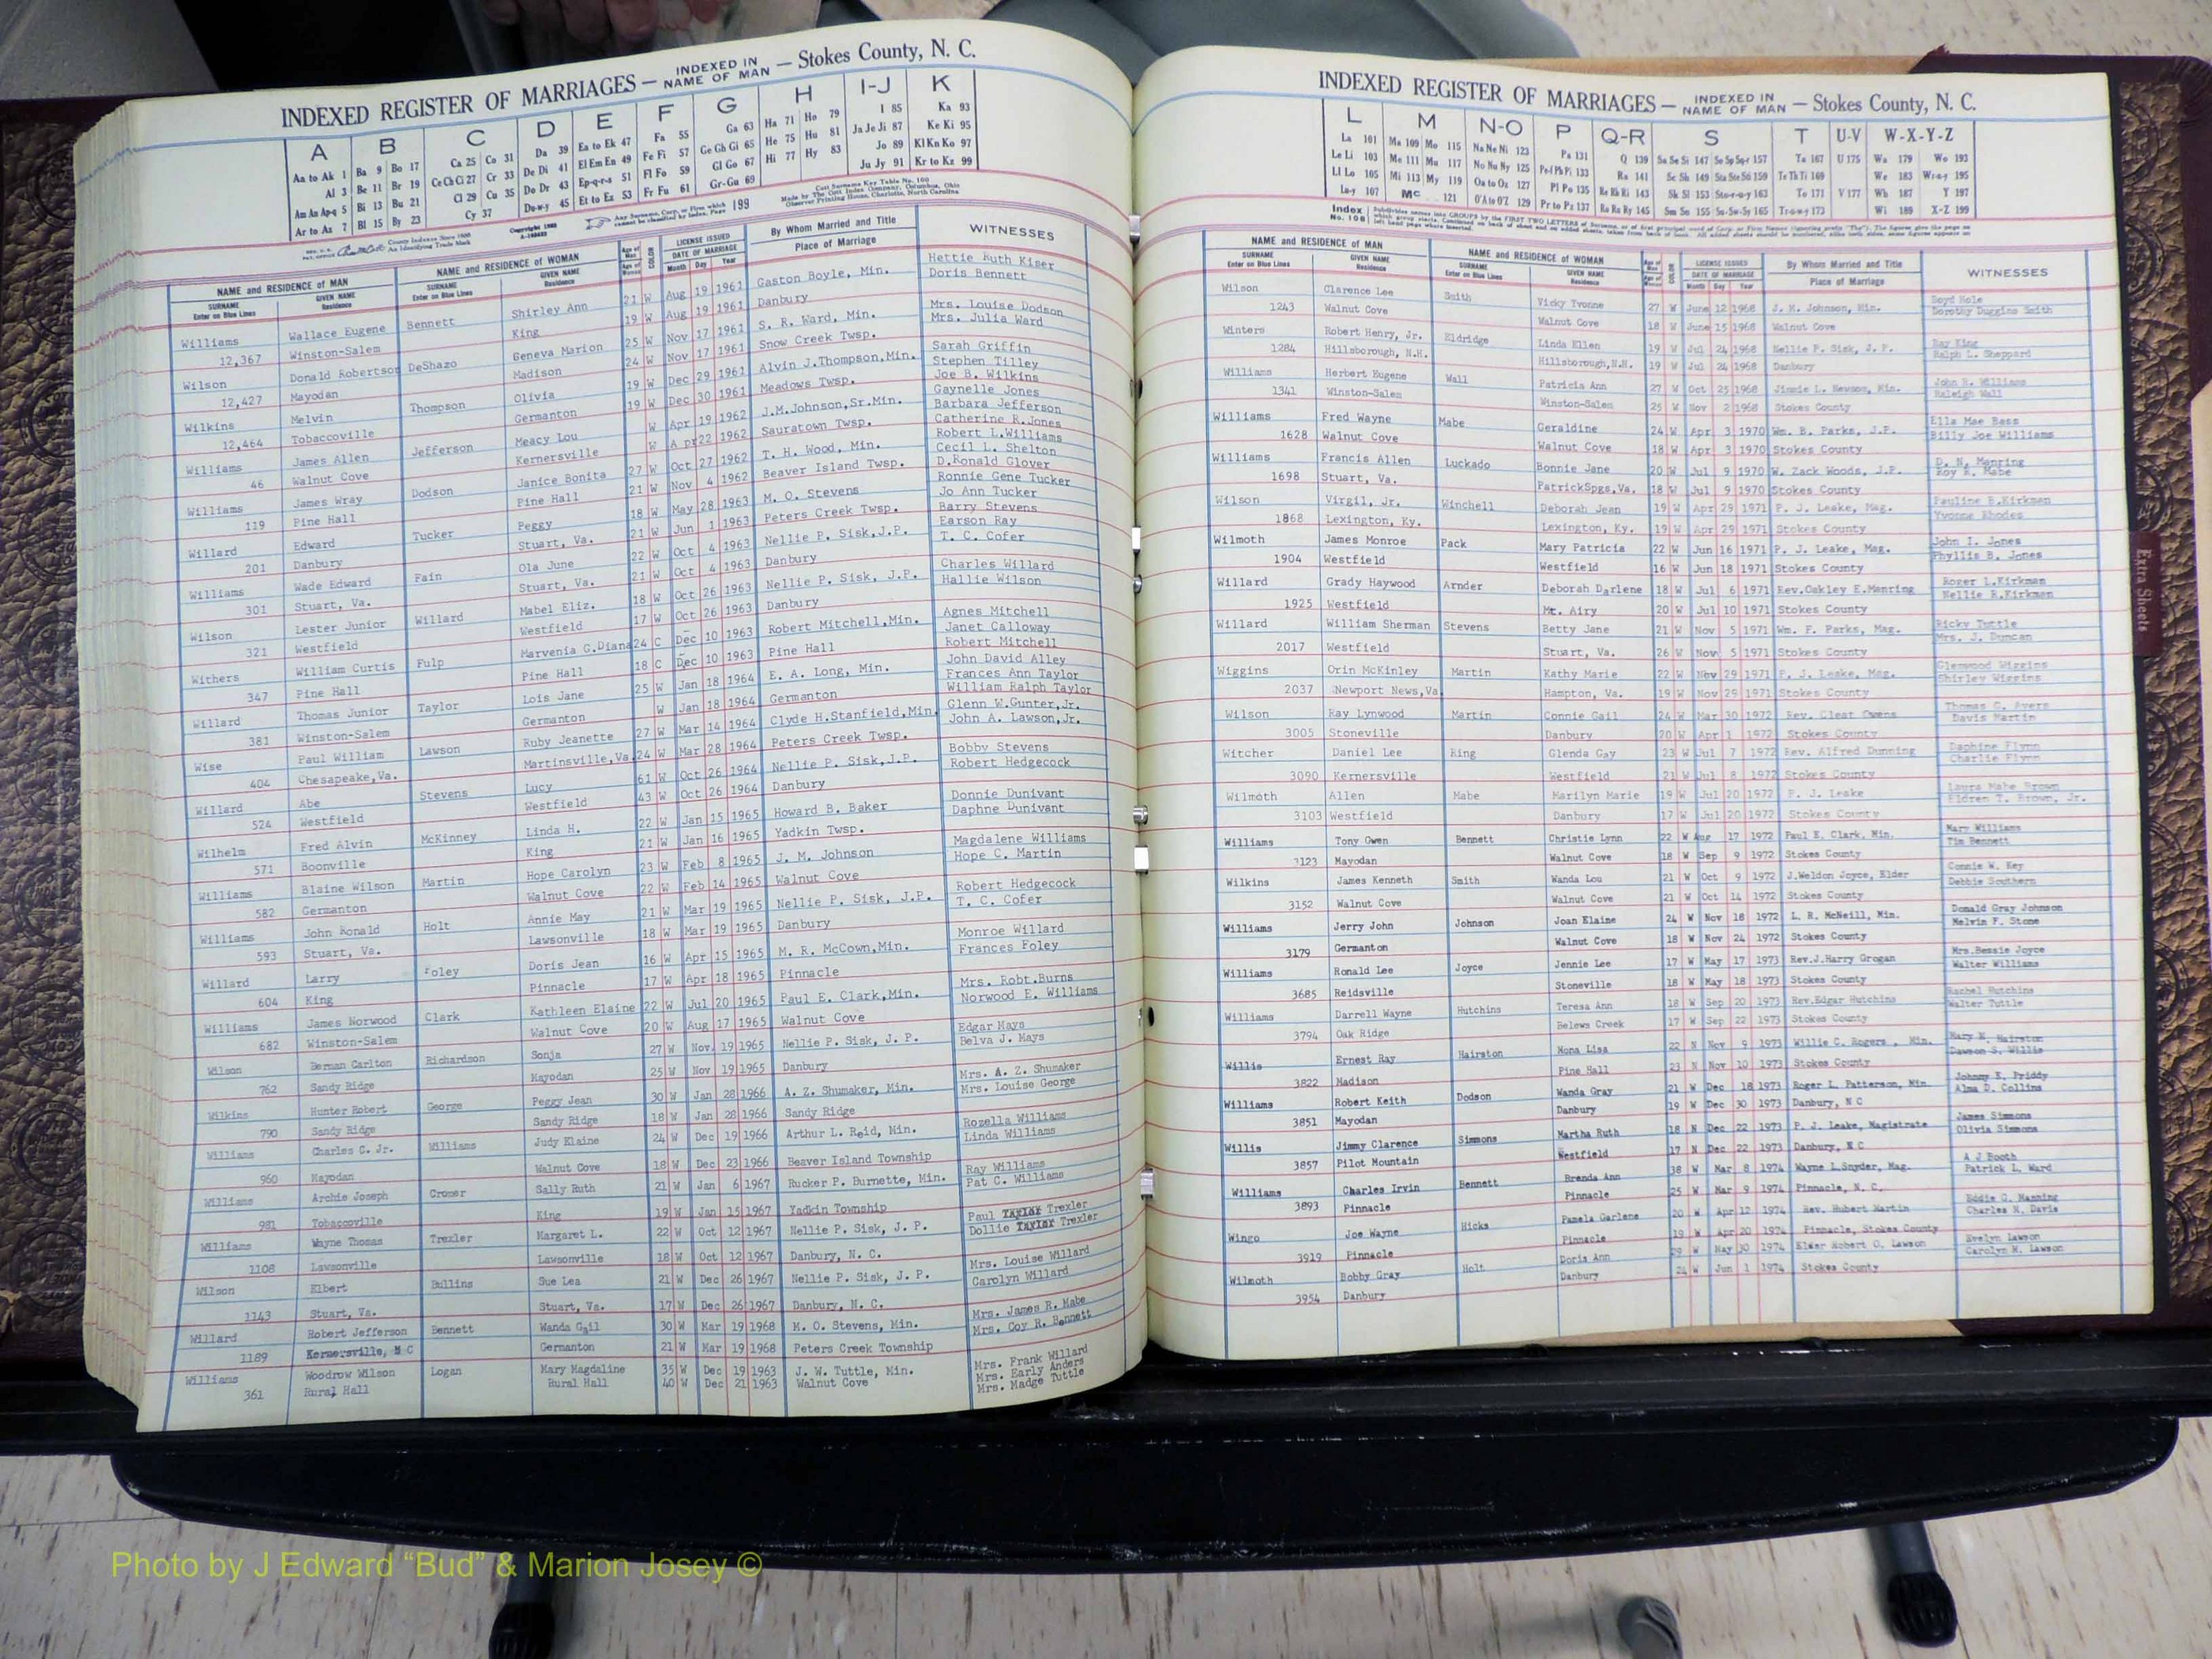 INDEXED REGISTER OF MARRIAGES — INDEXED IN NAME OF MAN — Stokes County, N. C.
A B C D E F G H I-J K
Aa to Ak 1 Ba 9 Bo 17 Ca 25 Co 31 Da 39 Ea to Ek 47 Fa 55 Ga 63 Ha 71 Ho 79 I 85 Ka 93
Al 3 Be 11 Br 19 Ce Ch Ci 27 Cr 33 De Di 41 El Em En 49 Fe Fi 57 Ge Gh Gi 65 He 75 Hu 81 Ja Je Ji 87 Ke Ki 95
Am An Ap-q 5 Bi 13 Bu 21 Cl 29 Cu 35 Do Dr 43 Ep-q-r-s 51 Fl Fo 59 Gl Go 67 Hi 77 Hy 83 Jo 89 Kl Kn Ko 97
Ar to Az 7 Bl 15 By 23 Cy 37 Du-w-y 45 Et to Ez 53 Fr Fu 61 Gr-Gu 69 Ju Jy 91 Kr to Kz 99
NAME and RESIDENCE of MAN NAME and RESIDENCE of WOMAN LICENSE ISSUED By Whom Married and Title WITNESSES
SURNAME Enter on Blue Lines GIVEN NAME Residence SURNAME Enter on Blue Lines GIVEN NAME Residence COLOR DATE OF MARRIAGE Month Day Year Place of Marriage
Williams Wallace Eugene Bennett Shirley Ann 21 W Aug 19 1961 Gaston Boyle, Min. Hettie Ruth Kiser
12,367 Winston-Salem King 19 W Aug 19 1961 Danbury Doris Bennett
Wilson Donald Robertson DeShazo Geneva Marion 25 W Nov 17 1961 S. R. Ward, Min. Mrs. Louise Dodson
12,427 Mayodan Madison 24 W Nov 17 1961 Snow Creek Twsp. Mrs. Julia Ward
Wilkins Melvin Thompson Olivia 19 W Dec 29 1961 Alvin J.Thompson,Min. Sarah Griffin
12,464 Tobaccoville Germanton 19 W Dec 30 1961 Meadows Twsp. Stephen Tilley
Joe B. Wilkins
Williams James Allen Jefferson Meacy Lou W Apr 19 1962 J.M.Johnson,Sr.Min. Gaynelle Jones
46 Walnut Cove Kernersville W Apr 22 1962 Sauratown Twsp. Barbara Jefferson
Catherine R.Jones
Williams James Wray Dodson Janice Bonita 27 W Oct 27 1962 T. H. Wood, Min. Robert L.Williams
119 Pine Hall Pine Hall 21 W Nov 4 1962 Beaver Island Twsp. Cecil L. Shelton
D.Ronald Glover
Willard Edward Tucker Peggy 18 W May 28 1963 M. O. Stevens Ronnie Gene Tucker
201 Danbury Stuart, Va. 21 W Jun 1 1963 Peters Creek Twsp. Jo Ann Tucker
Barry Stevens
Williams Wade Edward Fain Ola June 22 W Oct 4 1963 Nellie P. Sisk,J.P. Earson Ray
301 Stuart, Va. Stuart, Va. 21 W Oct 4 1963 Danbury T. C. Cofer
Wilson Lester Junior Willard Mabel Eliz. 18 W Oct 26 1963 Nellie P. Sisk, J.P. Charles Willard
321 Westfield Westfield 17 W Oct 26 1963 Danbury Hallie Wilson
Withers William Curtis Fulp Marvenia G.Diana 24 C Dec 10 1963 Robert Mitchell,Min. Agnes Mitchell
347 Pine Hall Pine Hall 18 C Dec 10 1963 Pine Hall Janet Calloway
Robert Mitchell
Willard Thomas Junior Taylor Lois Jane 25 W Jan 18 1964 E. A. Long, Min. John David Alley
381 Winston-Salem Germanton W Jan 18 1964 Germanton Frances Ann Taylor
William Ralph Taylor
Wise Paul William Lawson Ruby Jeanette 27 W Mar 14 1964 Clyde H.Stanfield,Min. Glenn W.Gunter,Jr.
404 Chesapeake,Va. Martinsville,Va. 24 W Mar 28 1964 Peters Creek Twsp. John A. Lawson,Jr.
Willard Abe Stevens Lucy 61 W Oct 26 1964 Nellie P. Sisk,J.P. Bobby Stevens
524 Westfield Westfield 43 W Oct 26 1964 Danbury Robert Hedgecock
Wilhelm Fred Alvin McKinney Linda H. 22 W Jan 15 1965 Howard B. Baker Donnie Dunivant
571 Boonville King 21 W Jan 16 1965 Yadkin Twsp. Daphne Dunivant
Williams Blaine Wilson Martin Hope Carolyn 23 W Feb 8 1965 J. M. Johnson Magdalene Williams
582 Germanton Walnut Cove 22 W Feb 14 1965 Walnut Cove Hope C. Martin
Williams John Ronald Holt Annie May 21 W Mar 19 1965 Nellie P. Sisk, J.P. Robert Hedgecock
593 Stuart, Va. Lawsonville 18 W Mar 19 1965 Danbury T. C. Cofer
Willard Larry Foley Doris Jean 16 W Apr 15 1965 M. R. McCown,Min. Monroe Willard
604 King Pinnacle 17 W Apr 18 1965 Pinnacle Frances Foley
Williams James Norwood Clark Kathleen Elaine 22 W Jul 20 1965 Paul E. Clark,Min. Mrs. Robt.Burns
682 Winston-Salem Walnut Cove 20 W Aug 17 1965 Walnut Cove Norwood E. Williams
Wilson Berman Carlton Richardson Sonja 27 W Nov. 19 1965 Nellie P. Sisk, J. P. Edgar Mays
762 Sandy Ridge Mayodan 25 W Nov 19 1965 Danbury Belva J. Mays
Wilkins Hunter Robert George Peggy Jean 30 W Jan 28 1966 A. Z. Shumaker, Min. Mrs. A. Z. Shumaker
790 Sandy Ridge Sandy Ridge 18 W Jan 28 1966 Sandy Ridge Mrs. Louise George
Williams Charles C. Jr. Williams Judy Elaine 24 W Dec 19 1966 Arthur L. Reid, Min. Rozella Williams
960 Mayodan Walnut Cove 18 W Dec 23 1966 Beaver Island Township Linda Williams
Williams Archie Joseph Cromer Sally Ruth 21 W Jan 6 1967 Rucker P. Burnette, Min. Ray Williams
981 Tobaccoville King 19 W Jan 15 1967 Yadkin Township Pat C. Williams
Williams Wayne Thomas Trexler Margaret L. 22 W Oct 12 1967 Nellie P. Sisk, J. P. Paul Trexler
1108 Lawsonville Lawsonville 18 W Oct 12 1967 Danbury, N. C. Dollie Trexler
Wilson Elbert Bullins Sue Lea 21 W Dec 26 1967 Nellie P. Sisk, J. P. Mrs. Louise Willard
1143 Stuart, Va. Stuart, Va. 17 W Dec 26 1967 Danbury, N. C. Carolyn Willard
Willard Robert Jefferson Bennett Wanda Gail 30 W Mar 19 1968 M. O. Stevens, Min. Mrs. James R. Mabe
1189 Kernersville, N C Germanton 21 W Mar 19 1968 Peters Creek Township Mrs. Coy R. Bennett
Williams Woodrow Wilson Logan Mary Magdaline 35 W Dec 19 1963 J. W. Tuttle, Min. Mrs. Frank Willard
361 Rural Hall Rural Hall 40 W Dec 21 1963 Walnut Cove Mrs. Early Anders
Mrs. Madge Tuttle
INDEXED REGISTER OF MARRIAGES — INDEXED IN NAME OF MAN — Stokes County, N. C.
L M N-O P Q-R S T U-V W-X-Y-Z
La 101 Ma 109 Mo 115 Na Ne Ni 123 Pa 131 Q 139 Sa Se Si 147 So Sp Sq-r 157 Ta 167 U 175 Wa 179 Wo 193
Le Li 103 Me 111 Mu 117 No Nu Ny 125 Pe-f Ph Pi 133 Ra 141 Sc Sh 149 Sta Ste Sti 159 Te Th Ti 169 We 183 Wr-u-y 195
Ll Lo 105 Mi 113 My 119 Oa to Oz 127 Pl Po 135 Re Rh Ri 143 Sk Sl 153 Sto-r-u-y 163 To 171 V 177 Wh 187 Y 197
Lu-y 107 Mc 121 O'A to O'Z 129 Pr to Pz 137 Ro Ru Ry 145 Sm Sn 155 Su-Sw-Sy 165 Tr-u-w-y 173 Wi 189 X-Z 199
NAME and RESIDENCE of MAN NAME and RESIDENCE of WOMAN LICENSE ISSUED By Whom Married and Title WITNESSES
SURNAME Enter on Blue Lines GIVEN NAME Residence SURNAME Enter on Blue Lines GIVEN NAME Residence COLOR DATE OF MARRIAGE Month Day Year Place of Marriage
Wilson Clarence Lee Smith Vicky Yvonne 27 W June 12 1968 J. M. Johnson, Min. Boyd Hole
1243 Walnut Cove Walnut Cove 18 W June 15 1968 Walnut Cove Dorothy Duggins Smith
Winters Robert Henry, Jr. Eldridge Linda Ellen 19 W Jul 24 1968 Nellie P. Sisk, J. P. Ray King
1284 Hillsborough, N.H. Hillsborough,N.H. 19 W Jul 24 1968 Danbury Ralph L. Sheppard
Williams Herbert Eugene Wall Patricia Ann 27 W Oct 25 1968 Jimmie L. Newsom, Min. John H. Williams
1341 Winston-Salem Winston-Salem 25 W Nov 2 1968 Stokes County Raleigh Wall
Williams Fred Wayne Mabe Geraldine 24 W Apr 3 1970 Wm. B. Parks, J.P. Ella Mae Bass
1628 Walnut Cove Walnut Cove 18 W Apr 3 1970 Stokes County Billy Joe Williams
Williams Francis Allen Luckado Bonnie Jane 20 W Jul 9 1970 W. Zack Woods, J.P. D. N. Manring
1698 Stuart, Va. PatrickSpgs,Va. 18 W Jul 9 1970 Stokes County Roy E. Mabe
Wilson Virgil, Jr. Winchell Deborah Jean 19 W Apr 29 1971 P. J. Leake, Mag. Pauline B.Kirkman
1868 Lexington, Ky. Lexington, Ky. 19 W Apr 29 1971 Stokes County Yvonne Rhodes
Wilmoth James Monroe Pack Mary Patricia 22 W Jun 16 1971 P. J. Leake, Mag. John I. Jones
1904 Westfield Westfield 16 W Jun 18 1971 Stokes County Phyllis B. Jones
Willard Grady Haywood Arnder Deborah Darlene 18 W Jul 6 1971 Rev.Oakley E.Manring Roger L.Kirkman
1925 Westfield Mt. Airy 20 W Jul 10 1971 Stokes County Nellie R.Kirkman
Willard William Sherman Stevens Betty Jane 21 W Nov 5 1971 Wm. F. Parks, Mag. Ricky Tuttle
2017 Westfield Stuart, Va. 26 W Nov 5 1971 Stokes County Mrs. J. Duncan
Wiggins Orin McKinley Martin Kathy Marie 22 W Nov 29 1971 P. J. Leake, Mag. Glenwood Wiggins
2037 Newport News,Va Hampton, Va. 19 W Nov 29 1971 Stokes County Shirley Wiggins
Wilson Ray Lynwood Martin Connie Gail 24 W Mar 30 1972 Rev. Cleat Owens Thomas C. Ayers
3005 Stoneville Danbury 20 W Apr 1 1972 Stokes County Davis Martin
Witcher Daniel Lee King Glenda Gay 23 W Jul 7 1972 Rev. Alfred Dunning Daphine Flynn
3090 Kernersville Westfield 21 W Jul 8 1972 Stokes County Charlie Flynn
Wilmoth Allen Mabe Marilyn Marie 19 W Jul 20 1972 P. J. Leake Laura Mabe Brown
3103 Westfield Danbury 17 W Jul 20 1972 Stokes County Eldren T. Brown, Jr.
Williams Tony Owen Bennett Christie Lynn 22 W Aug 17 1972 Paul E. Clark, Min. Mary Williams
3123 Mayodan Walnut Cove 18 W Sep 9 1972 Stokes County Tim Bennett
Wilkins James Kenneth Smith Wanda Lou 21 W Oct 9 1972 J.Weldon Joyce, Elder Connie W. Key
3152 Walnut Cove Walnut Cove 21 W Oct 14 1972 Stokes County Debbie Southern
Williams Jerry John Johnson Joan Elaine 24 W Nov 18 1972 L. R. McNeill, Min. Donald Gray Johnson
3179 Germanton Walnut Cove 18 W Nov 24 1972 Stokes County Melvin F. Stone
Williams Ronald Lee Joyce Jennie Lee 17 W May 17 1973 Rev.J.Harry Grogan Mrs.Bessie Joyce
3685 Reidsville Stoneville 18 W May 18 1973 Stokes County Walter Williams
Williams Darrell Wayne Hutchins Teresa Ann 18 W Sep 20 1973 Rev.Edgar Hutchins Rachel Hutchins
3794 Oak Ridge Belews Creek 17 W Sep 22 1973 Stokes County Walter Tuttle
Willis Ernest Ray Hairston Mona Lisa 22 N Nov 9 1973 Willie C. Rogers, Min. Mary K. Hairston
3822 Madison Pine Hall 23 N Nov 10 1973 Stokes County Dawson S. Willis
Williams Robert Keith Dodson Wanda Gray 21 W Dec 18 1973 Roger L. Patterson, Min Johnny E. Priddy
3851 Mayodan Danbury 19 W Dec 30 1973 Danbury, N C Alma D. Collins
Willis Jimmy Clarence Simmons Martha Ruth 18 N Dec 22 1973 P. J. Leake, Magistrate James Simmons
3857 Pilot Mountain Westfield 17 N Dec 22 1973 Danbury, N C Olivia Simmons
Williams Charles Irvin Bennett Brenda Ann 38 W Mar 8 1974 Wayne L.Snyder, Mag. A J Booth
3893 Pinnacle Pinnacle 25 W Mar 9 1974 Pinnacle, N. C. Patrick L. Ward
Wingo Joe Wayne Hicks Pamela Garlene 20 W Apr 12 1974 Rev. Hubert Martin Eddie C. Manning
3919 Pinnacle Pinnacle 19 W Apr 20 1974 Pinnacle, Stokes County Charles R. Davis
Wilmoth Bobby Gray Holt Doris Ann 29 W May 30 1974 Elder Robert O. Lawson Evelyn Lawson
3954 Danbury Danbury 24 W Jun 1 1974 Stokes County Carolyn M. Lawson
Extra Sheets
Photo by J Edward “Bud” & Marion Josey ©